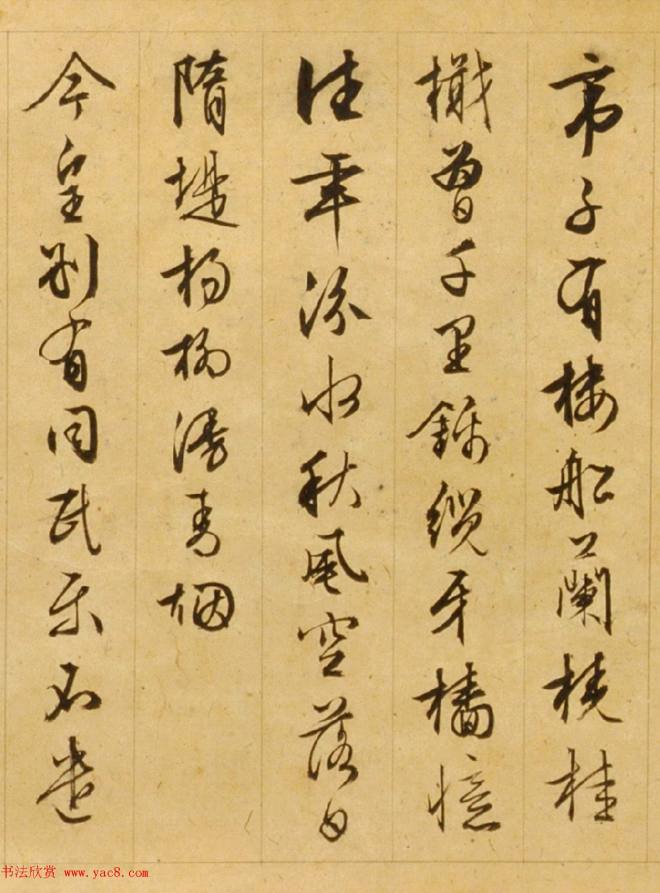 帝子有樓船蘭橈桂
檝曾千里錦纜牙檣憶
往年汾水秋風空落日
隋堤楊柳漫青烟
今皇別有同民樂不遣
书法欣赏 www.yac8.com